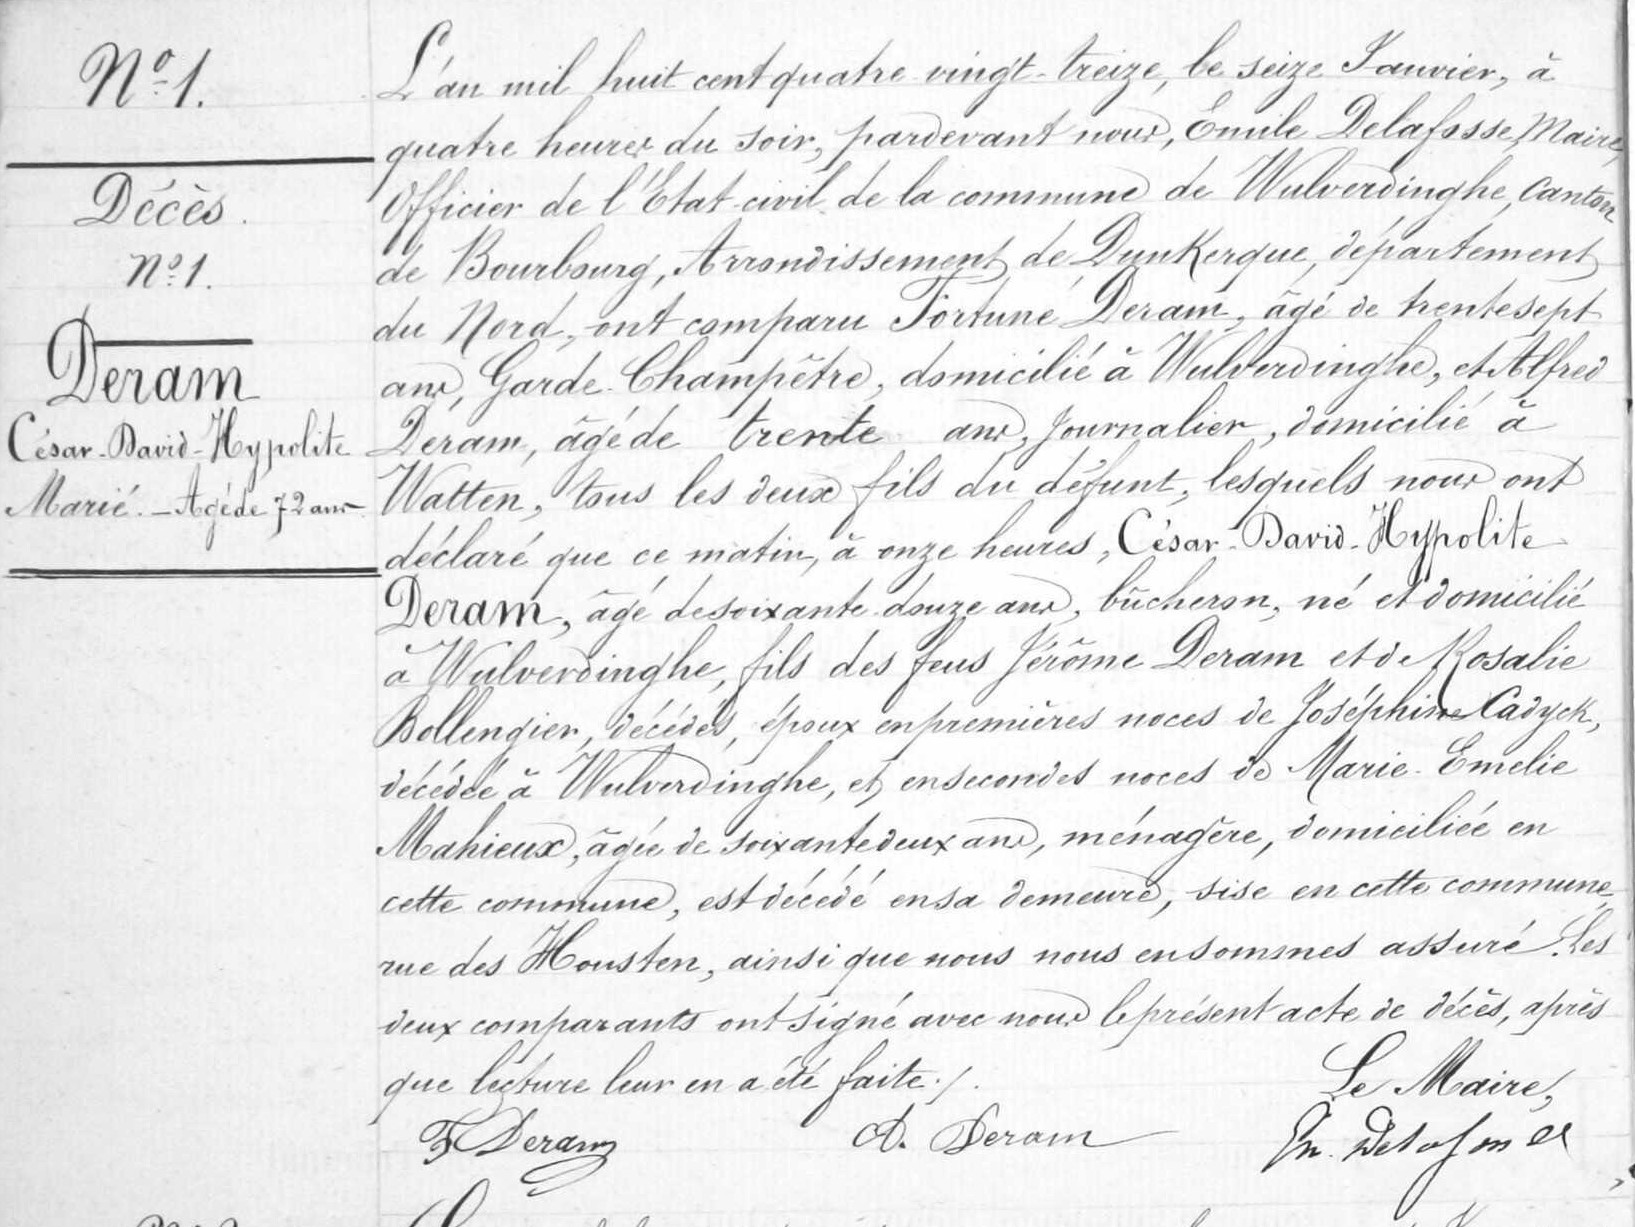 No. 1.
Décès.
No. 1.
Deram
César-David-Hypolite
Marié. - Agé de 72 ans
L'an mil huit cent quatre-vingt-treize, le seize Janvier, à
quatre heures du soir, pardevant nous, Emile Delafosse, Maire,
Officier de l'Etat-civil de la commune de Wulverdinghe, Canton
de Bourbourg, Arrondissement de Dunkerque, département
du Nord, ont comparu Fortuné Deram, âgé de trente sept
ans, Garde-Champêtre, domicilié à Wulverdinghe, et Alfred
Deram, âgé de trente ans, Journalier, domicilié à
Watten, tous les deux fils du défunt, lesquels nous ont
déclaré que ce matin, à onze heures, César-David-Hypolite
Deram, âgé de soixante-douze ans, bûcheron, né et domicilié
à Wulverdinghe, fils des feus Jérôme Deram et de Rosalie
Bollengier, décédés, époux en premières noces de Joséphine Cadyck,
décédée à Wulverdinghe, et en secondes noces de Marie-Emelie
Mahieux, âgée de soixante deux ans, ménagère, domiciliée en
cette commune, est décédé en sa demeure, sise en cette commune,
rue des Housten, ainsi que nous nous en sommes assuré. Les
deux comparants ont signé avec nous le présent acte de décès, après
que lecture leur en a été faite./.
Le Maire,
F Deram A. Deram Em. Delafosse